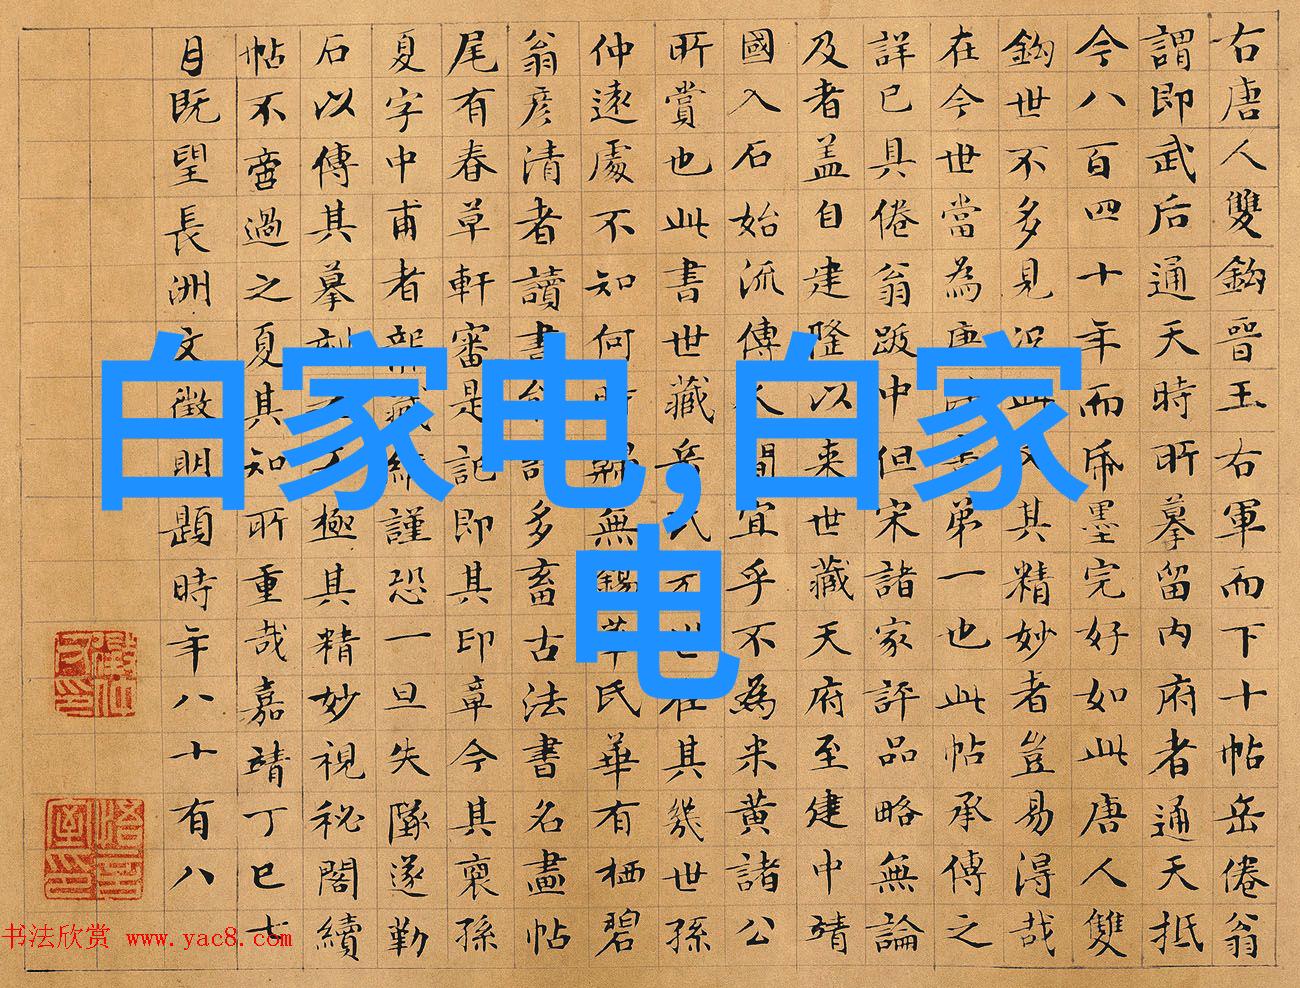 右唐人雙鈎晉王右軍而下十帖岳倦翁
謂即武后通天時所摹留內府者通天抵
今八百四十年而帋墨完好如此唐人雙
鈎世不多見其精妙者豈易得哉
在今世當為唐第一也此帖承傳之
詳已具倦翁跋中但宋諸家評品略無論
及者盖自建隆以來世藏天府至建中靖
國入石始流傳人間宜乎不為米黃諸公
所賞也此書世藏岳氏世在其幾世孫
仲遠處不知何時歸無錫華氏華有栖碧
翁彦清者讀書能詩多畜古法書名畫帖
尾有春草軒審是記即其印章今其裔孫
夏字中甫者藏謹恐一旦失墜遂勒
石以傳其摹刻極其精妙視秘閣續
帖不啻過之夏其知所重哉嘉靖丁巳七
月既望長洲文徵明題時年八十有八
白家电,白家
电
书法欣赏 www.yac8.com